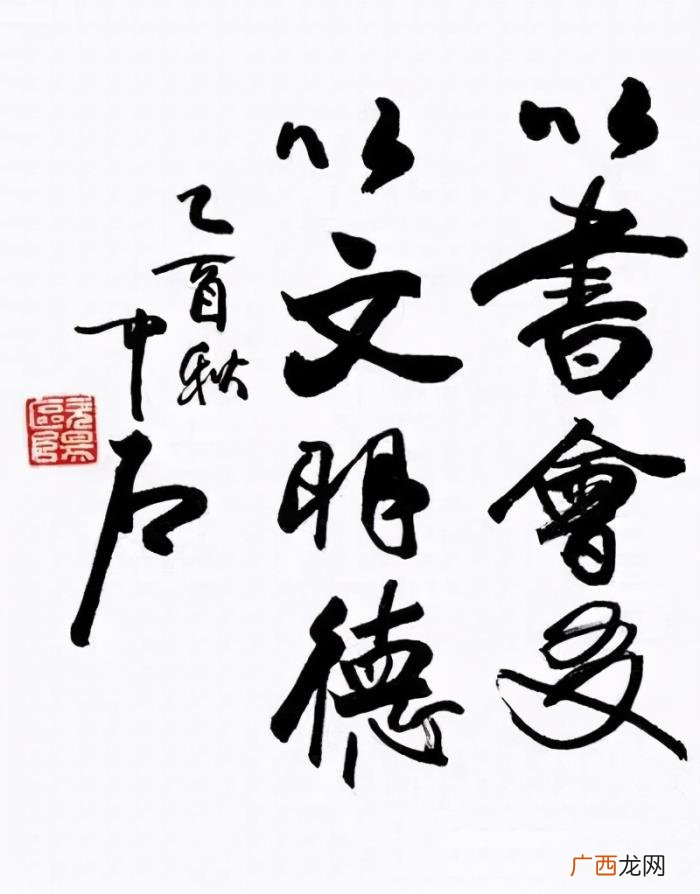 以書會友
以文明德
乙酉秋
中石
广西龙网